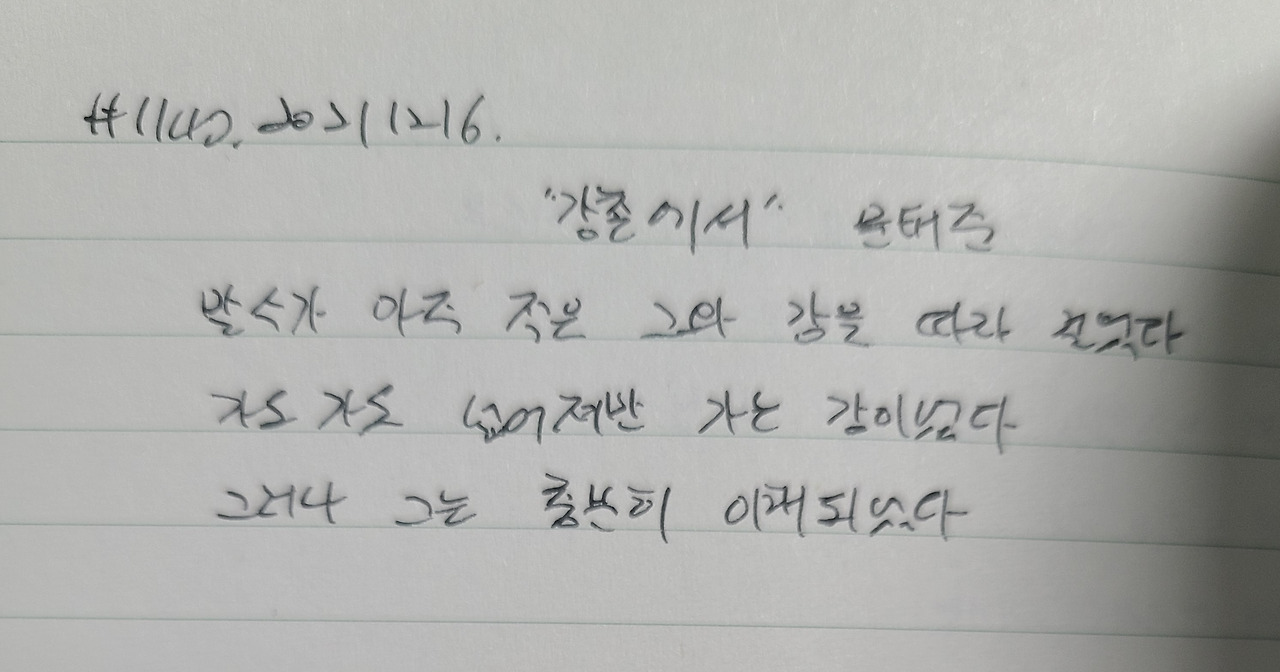 #1140. 20211216.
"강촌에서" 문태준
말수가 아주 적은 그와 강을 따라 걸었다
가도 가도 넓어져만 가는 강이었다
그러나 그는 충분히 이해되었다